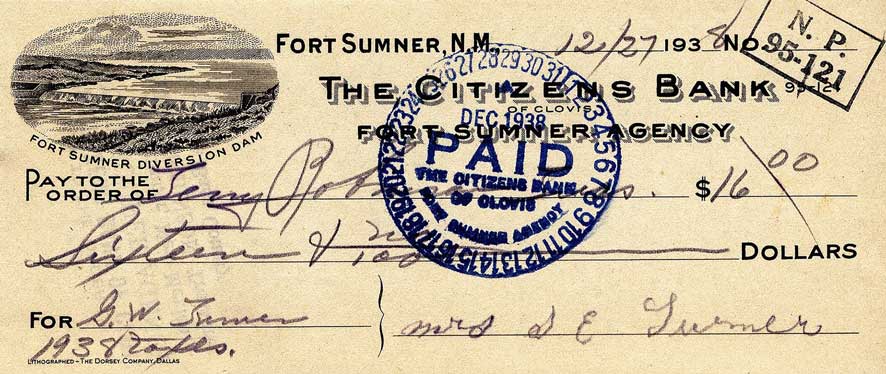 FORT SUMNER, N.M. 12/27 1938 No.
N. P.
95-121
THE CITIZENS BANK
OF CLOVIS
FORT SUMNER AGENCY
FORT SUMNER DIVERSION DAM
PAY TO THE
ORDER OF $16 00
Sixteen & no/100 DOLLARS
FOR G. W. Turner
1938 Taxes.
Mrs S E Turner
LITHOGRAPHED - THE DORSEY COMPANY, DALLAS
1 2 3 4 5 6 7 8 9 10 11 12 13 14 15 16 17 18 19 20 21 22 23 24 25 26 27 28 29 30 31
DEC. 1938
PAID
THE CITIZENS BANK
OF CLOVIS
FORT SUMNER AGENCY